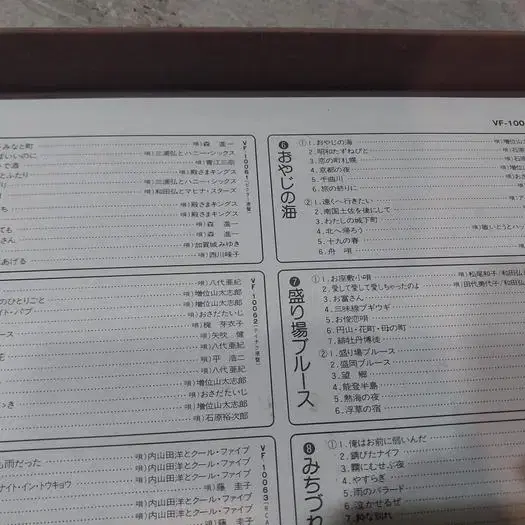 VF-100
みなと町 唄)森 進一
ばいいのに 唄)三浦弘とハニー・シックス
で酒 唄)青江三奈
とふたり 唄)殿さまキングス
り 唄)三浦弘とハニー・シックス
唄)和田弘とマヒナ・スターズ
ち 唄)殿さまキングス
唄)殿さまキングス
ても 唄)森 進一
さん 唄)森 進一
唄)加賀城みゆき
あげる 唄)西川峰子
VF-10061(ビクター原盤)
❻おやじの海
①1.おやじの海 唄)増位山
2.昭和たずねびと 唄)石原
3.恋の町札幌 唄)石原
4.京都の夜
5.千曲川
6.旅の終りに
②1.遠くへ行きたい
2.南国土佐を後にして
3.わたしの城下町
4.北へ帰ろう 唄)敏いとうとハッ
5.十九の春
6.舟 唄
唄)八代亜紀
のひとりごと 唄)増位山太志郎
イト・パブ 唄)おさだたいじ
唄)梶 芽衣子
ース 唄)矢吹 健
唄)八代亜紀
花 唄)平 浩二
唄)八代亜紀
唄)増位山太志郎
唄)おさだたいじ
っき 唄)増位山太志郎
唄)石原裕次郎
VF-10062(テイチク原盤)
❼盛り場ブルース
①1.お座敷小唄 唄)松尾和子/和田弘
2.愛して愛して愛しちゃったのよ 唄)田代美代子/和田弘
3.お富さん
4.三味線ブギウギ
5.お俊恋唄
6.円山・花町・母の町
7.緋牡丹博徒
②1.盛り場ブルース
2.盛岡ブルース
3.望 郷
4.能登半島
5.熱海の夜
6.浮草の宿
唄)内山田洋とクール・ファイブ
も雨だった 唄)内山田洋とクール・ファイブ
唄)内山田洋とクール・ファイブ
ナイト・イン・トウキョウ 唄)内山田洋とクール・ファイブ
唄)藤 圭子
唄)藤 圭子
VF-10063
❽みちづれ
①1.俺はお前に弱いんだ
2.錆びたナイフ
3.霧にむせぶ夜
4.やすらぎ
5.雨のバラード
6.泣かせるぜ
7.粋な別れ